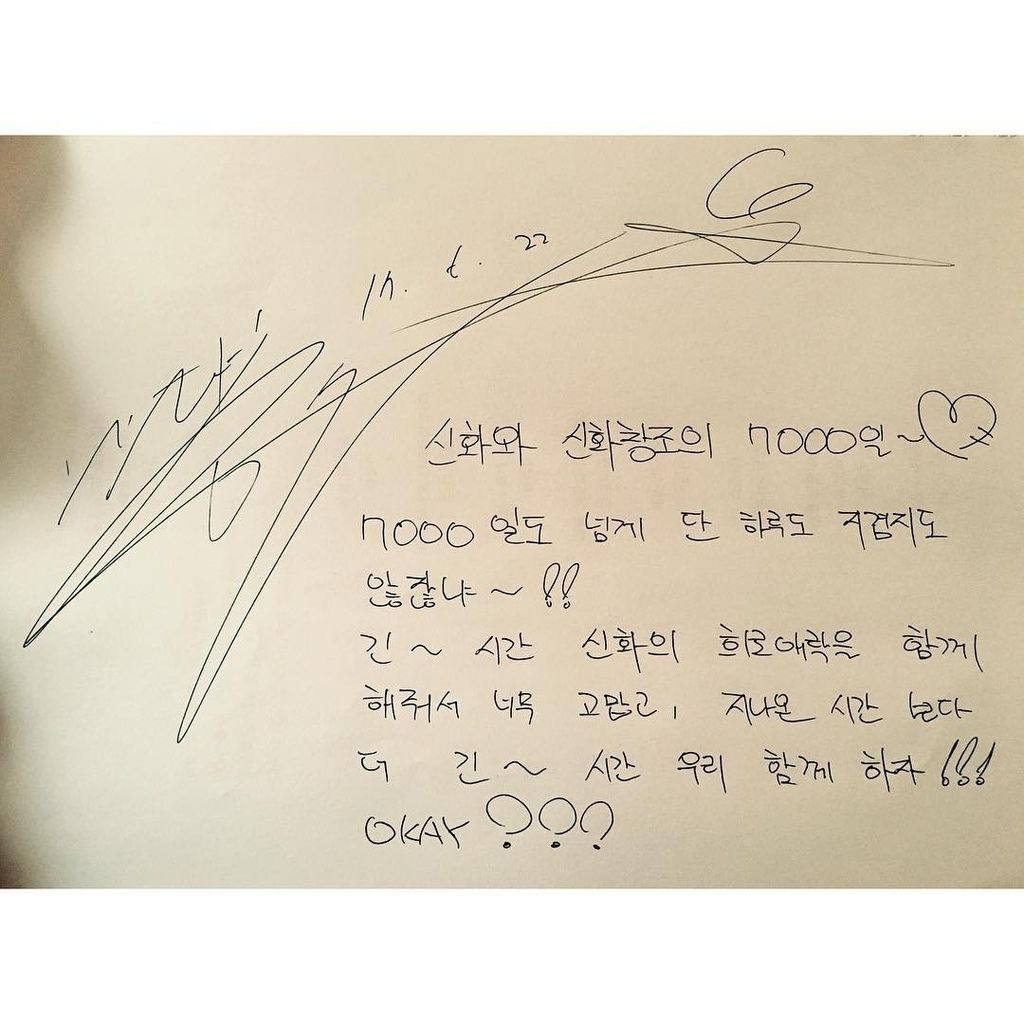 17. 5. 22
신화와 신화창조의 7000일~
7000일도 넘게 단 하루도 지겹지도
않잖냐~!!
긴~ 시간 신화의 희로애락을 함께
해줘서 너무 고맙고, 지나온 시간 보다
더 긴~ 시간 우리 함께 하자!!!
OKAY???